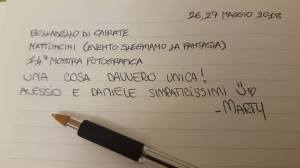 26,27 MAGGIO 2018
BOLLADELLO DI CAIRATE
MATTONCINI (EVENTO SVEGNAMO LA FANTASIA)
14ª MOSTRA FOTOGRAFICA
UNA COSA DAVVERO UNICA!
ALESSIO E DANIELE SIMPATICISSIMI
-MARTY